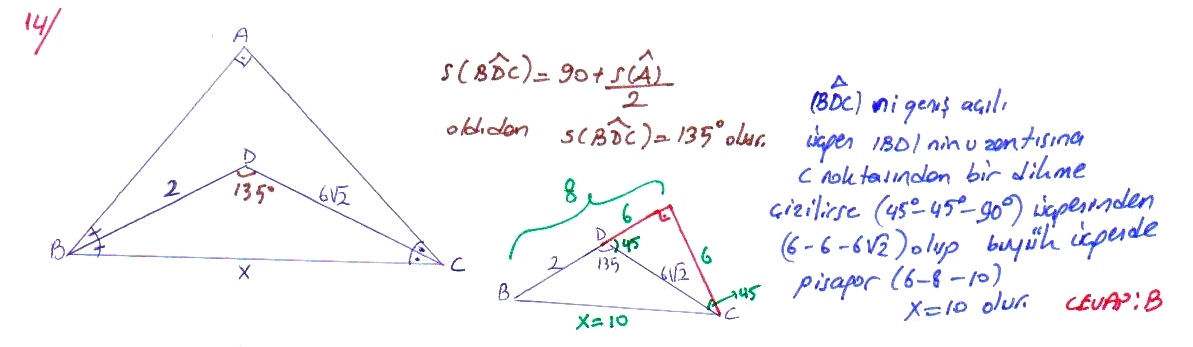 14/
A
D
2
135°
6√2
B
X
C
s(BD̂C) = 90 + s(Â)/2
olduğdan s(BD̂C) = 135° olur.
8
6
D
45
135
2
6√2
6
B
45
C
X=10
(BDC) ni geniş açılı
üçgen |BD| nin uzantısına
C noktasından bir dikme
çizilirse (45°-45°-90°) üçgeninden
(6-6-6√2) olup büyük üçgende
pisagor (6-8-10)
X=10 olur.
CEVAP: B